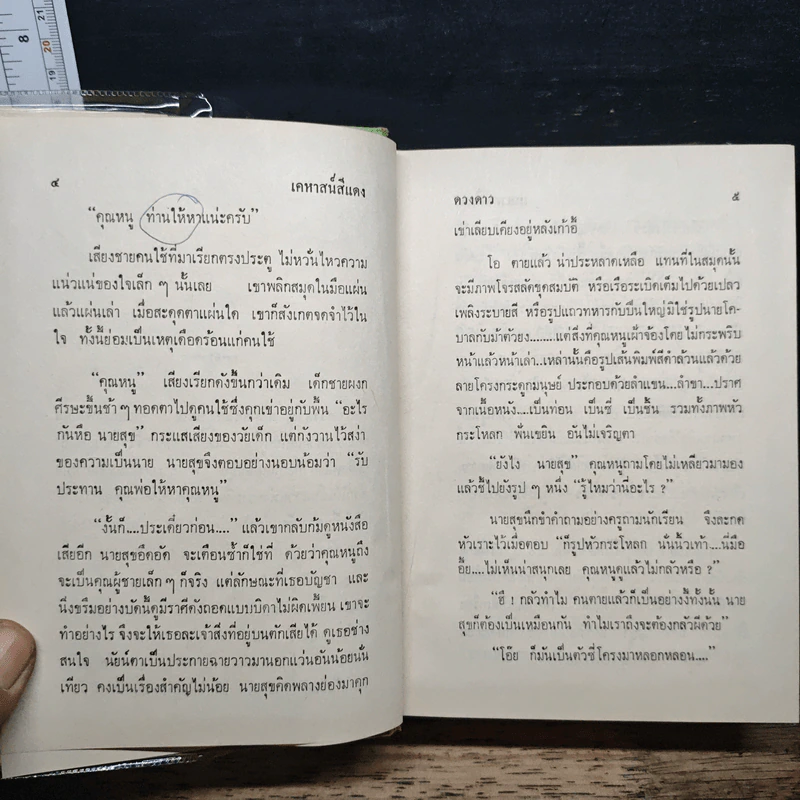 8
21
20
19
๔ เคหาสน์สีแดง
“คุณหนู ท่านให้หาแน่ะครับ”
เสียงชายคนใช้ที่มาเรียกตรงประตู ไม่หวั่นไหวความ
แน่วแน่ของใจเล็ก ๆ นั้นเลย เขาพลิกสมุดในมือแผ่น
แล้วแผ่นเล่า เมื่อสะดุดตาแผ่นใด เขาก็สังเกตจดจำไว้ใน
ใจ ทั้งนี้ย่อมเป็นเหตุเดือดร้อนแก่คนใช้
“คุณหนู” เสียงเรียกดังขึ้นกว่าเดิม เด็กชายผงก
ศีรษะขึ้นช้า ๆ ทอดตาไปดูคนใช้ซึ่งคุกเข่าอยู่กับพื้น “อะไร
กันหือ นายสุข” กระแสเสียงของวัยเด็ก แต่กังวานไว้สง่า
ของความเป็นนาย นายสุขจึงตอบอย่างนอบน้อมว่า “รับ
ประทาน คุณพ่อให้หาคุณหนู”
“งั้นก็....ประเดี๋ยวก่อน....” แล้วเขากลับก้มดูหนังสือ
เสียอีก นายสุขอึดอัด จะเตือนซ้ำก็ใช่ที่ ด้วยว่าคุณหนูถึง
จะเป็นคุณผู้ชายเล็ก ๆ ก็จริง แต่ลักษณะที่เธอบัญชา และ
นิ่งขรึมอย่างบัดนี้ดูมีราศีดังถอดแบบบิดาไม่ผิดเพี้ยน เขาจะ
ทำอย่างไร จึงจะให้เธอละเจ้าสิ่งที่อยู่บนตักเสียได้ ดูเธอช่าง
สนใจ นัยน์ตาเป็นประกายฉายวาวมานอกแว่นอันน้อยนั่น
เทียว คงเป็นเรื่องสำคัญไม่น้อย นายสุขคิดพลางย่องมาคุก
ดวงดาว ๕
เข่าเลียบเคียงอยู่หลังเก้าอี้
โอ ตายแล้ว น่าประหลาดเหลือ แทนที่ในสมุดนั้น
จะมีภาพโจรสลัดขุดสมบัติ หรือเรือระเบิดเต็มไปด้วยเปลว
เพลิงระบายสี หรือรูปแถวทหารกับปืนใหญ่มิใช่รูปนายโค-
บาลกับม้าตัวยง........แต่สิ่งที่คุณหนูเผ้าจ้องโดยไม่กระพริบ
หน้าแล้วหน้าเล่า..เหล่านั้นคือรูปเส้นพิมพ์สีดำล้วนแล้วด้วย
ลายโครงกระดูกมนุษย์ ประกอบด้วยลำแขน...ลำขา...ปราศ
จากเนื้อหนัง....เป็นท่อน เป็นซี่ เป็นชิ้น รวมทั้งภาพหัว
กระโหลก พั่นเขยิน อันไม่เจริญตา
“ยังไง นายสุข” คุณหนูถามโดยไม่เหลียวมามอง
แล้วชี้ไปยังรูป ๆ หนึ่ง “รู้ไหมว่านี่อะไร ?”
นายสุขนึกขำคำถามอย่างครูถามนักเรียน จึงสะกด
หัวเราะไว้เมื่อตอบ “ก็รูปหัวกระโหลก นั่นนิ้วเท้า....นี่มือ
อื้ย....ไม่เห็นน่าสนุกเลย คุณหนูดูแล้วไม่กลัวหรือ ?”
“ฮึ ! กลัวทำไม คนตายแล้วก็เป็นอย่างงี้ทั้งนั้น นาย
สุขก็ต้องเป็นเหมือนกัน ทำไมเราถึงจะต้องกลัวผีด้วย”
“โอ๊ย ก็มันเป็นตัวซี่โครงมาหลอกหลอน....”